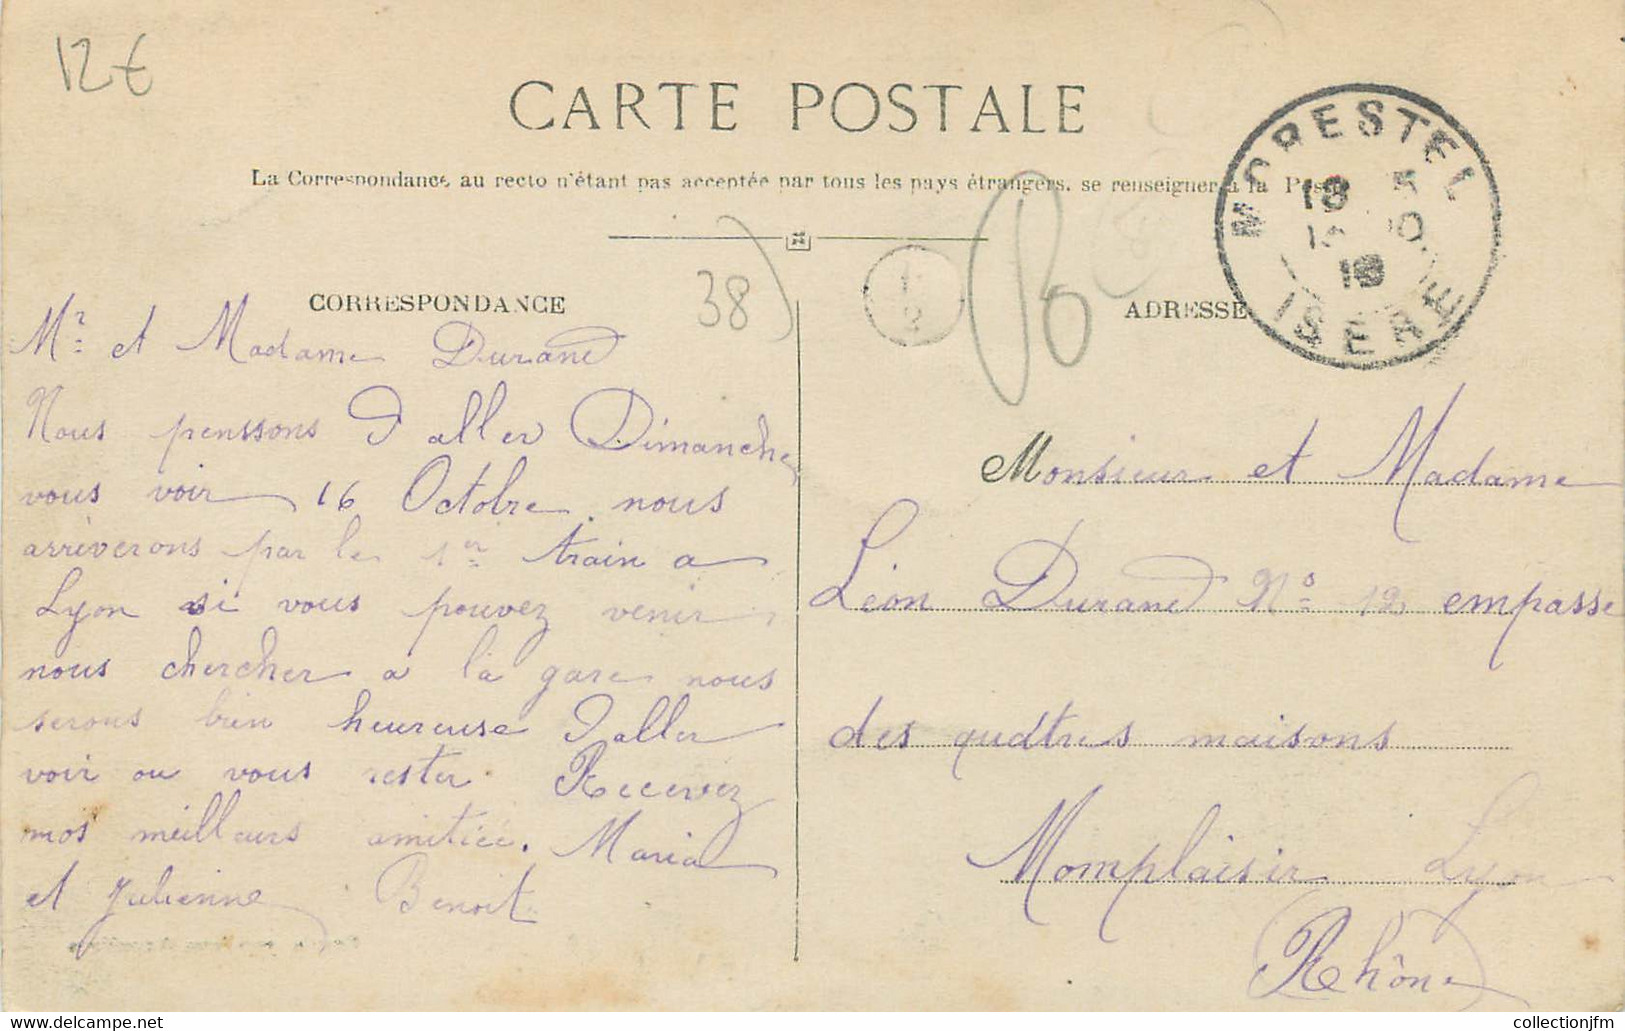 12€
CARTE POSTALE
La Correspondance au recto n'étant pas acceptée par tous les pays étrangers, se renseigner à la Poste
MORESTEL
18
18
ISERE
38)
CORRESPONDANCE
ADRESSE
Mr et Madame Durand
Nous penssons d aller Dimanche
vous voir 16 Octobre nous
arriverons par le 1er train a
Lyon si vous pouvez venir
nous chercher a la gare nous
serons bien heureuse d aller
voir ou vous rester Recevez
mos meilleurs amitiéé. Maria
et Julienne Benoit
Monsieur et Madame
Léon Durand No 12 empasse
des quatres maisons
Momplaisir Lyon
Rhône
collectionjfm